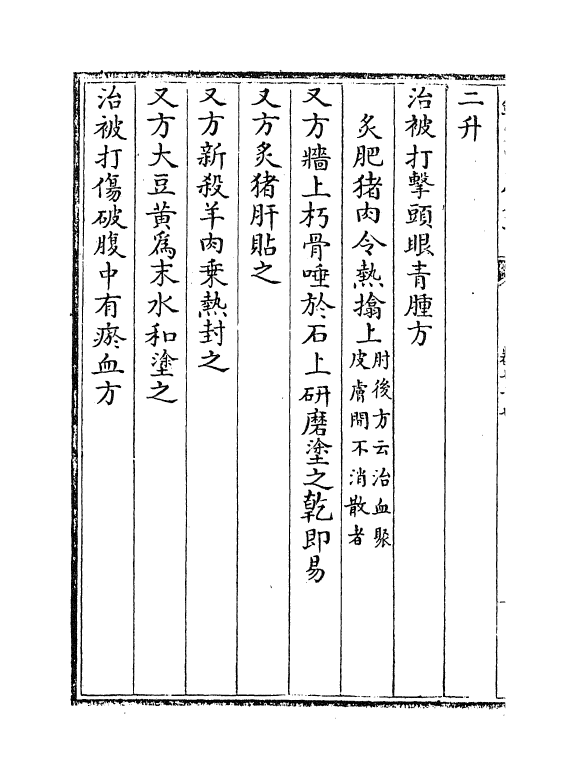 二升
治被打擊頭眼青腫方
炙肥猪肉令熱搨上肘後方云治血聚皮膚間不消散者
又方牆上朽骨唾於石上研磨塗之乾即易
又方炙猪肝貼之
又方新殺羊肉乗熱封之
又方大豆黄為末水和塗之
治被打傷破腹中有瘀血方